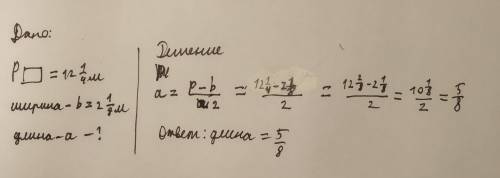 Дано:
P▭ = 12 1/4 м
ширина - b = 2 1/8 м
длина - a - ?
Решение
a = P-b/2 = 12 1/4 - 2 1/8/2 = 12 2/8 - 2 1/8/2 = 10 1/8/2 = 5/8
Ответ: длина = 5/8